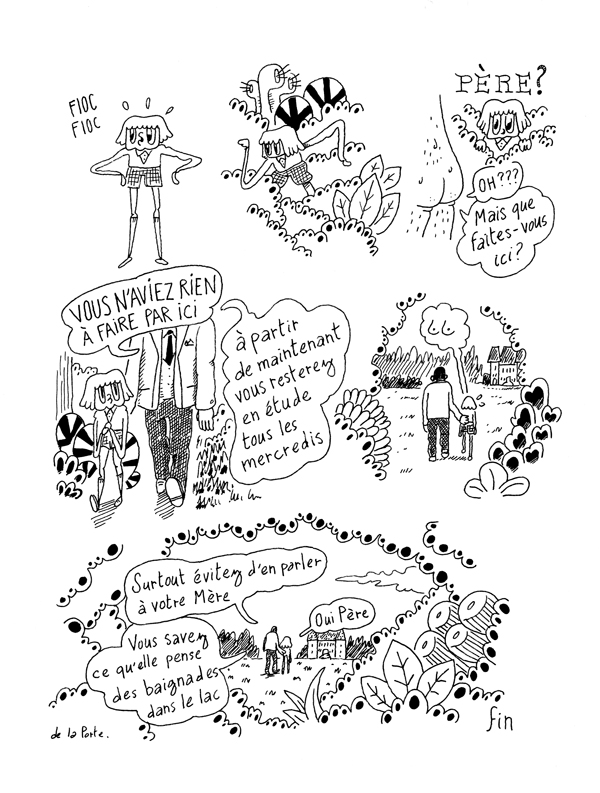 FIOC
FIOC
PÈRE?
OH???
Mais que
faites-vous
ici?
VOUS N'AVIEZ RIEN
À FAIRE PAR ICI
à partir
de maintenant
vous resterez
en étude
tous les
mercredis
Surtout évitez d'en parler
à votre Mère
Oui Père
Vous savez
ce qu'elle pense
des baignades
dans le lac
fin
de la Porte.